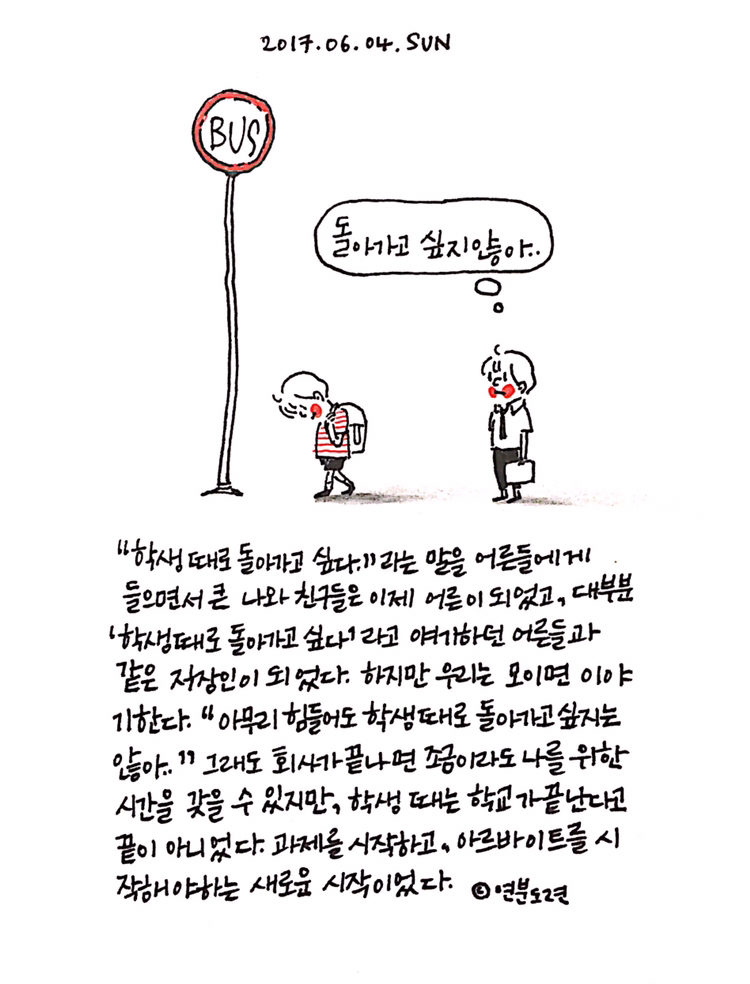 2017.06.04.SUN
BUS
돌아가고 싶지않아..
"학생 때로 돌아가고 싶다." 라는 말을 어른들에게
들으면서 큰 나와 친구들은 이제 어른이 되었고, 대부분
'학생때로 돌아가고 싶다' 라고 얘기하던 어른들과
같은 직장인이 되었다. 하지만 우리는 모이면 이야
기한다. "아무리 힘들어도 학생때로 돌아가고싶지는
않아.." 그래도 회사가 끝나면 조금이라도 나를 위한
시간을 갖을 수 있지만, 학생 때는 학교가 끝난다고
끝이 아니었다. 과제를 시작하고, 아르바이트를 시
작해야하는 새로운 시작이었다. ©연분도련